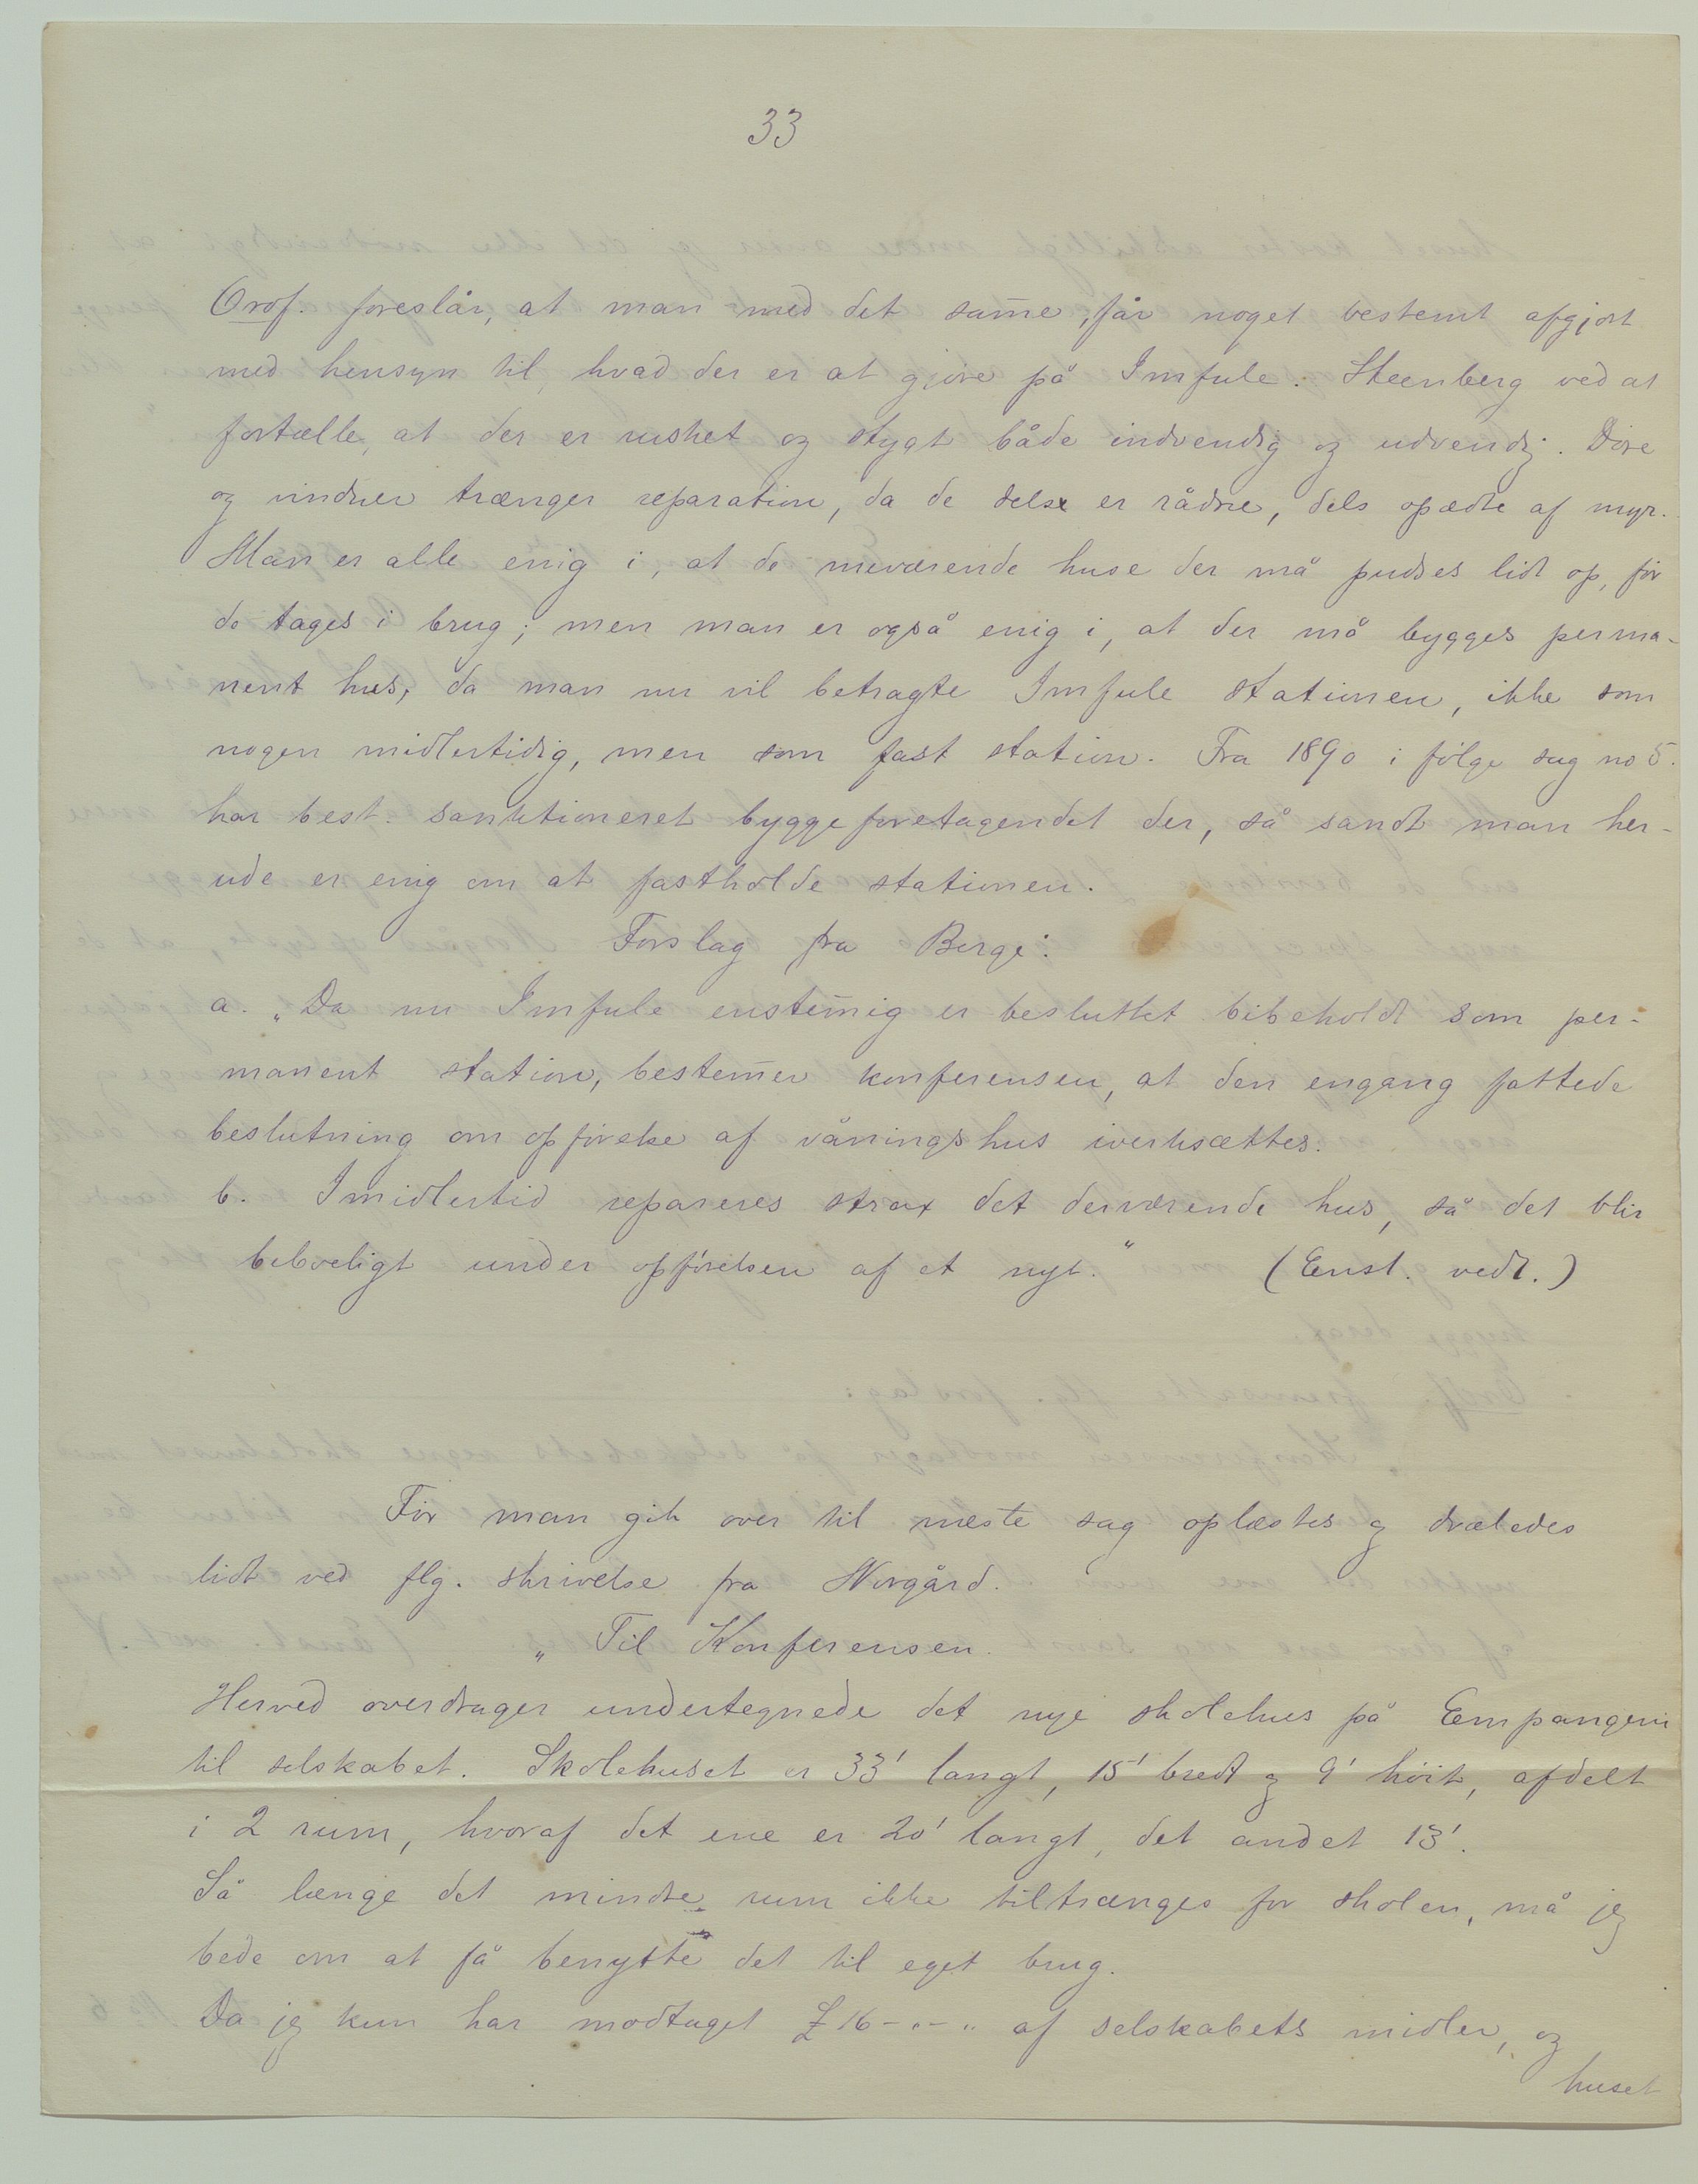 33
Ordf. foreslår, at man med det samme, får noget bestemt afgjort
med hensyn til, hvad der er at gjøre på Imfule. Steenberg ved at
fortælle, at der er rusket og stygt både indvendig og udvendig. Døre
og vinduer trænger reparation, da de dels er rådne, dels opædte af myr.
Man er alle enig i, at de nuværende huse der må pudses lidt op, før
de tages i brug; men man er også enig i, at der må bygges perma-
nent hus, da man nu vil betragte Imfule stationen, ikke som
nogen midlertidig, men som fast station. Fra 1890 i følge sag no 5.
har best. sanktioneret byggeforetagendet der, så sandt man her-
ude er enig om at fastholde stationen.
Forslag fra Berge:
a. „Da nu Imfule enstemmig er besluttet bibeholdt som per-
manent station, bestemmer konferensen, at den engang fattede
beslutning om opførelse af våningshus iverksættes.
b. Imidlertid repareres strax det derværende hus, så det blir
beboeligt under opførelsen af et nyt." (Enst. vedt.)
Før man gik over til næste sag oplæstes og dvæledes
lidt ved flg. skrivelse fra Norgård.
„Til Konferensen.
Herved overdrager undertegnede det nye skolehus på Empangeni
til selskabet. Skolehuset er 33' langt, 15' bredt og 9' høit, afdelt
i 2 rum, hvoraf det ene er 20' langt, det andet 13'.
Så længe det mindre rum ikke tiltrænges for skolen, må jeg
bede om at få benytte det til eget brug.
Da jeg kun har modtaget £ 16-"-" af selskabets midler, og
huset